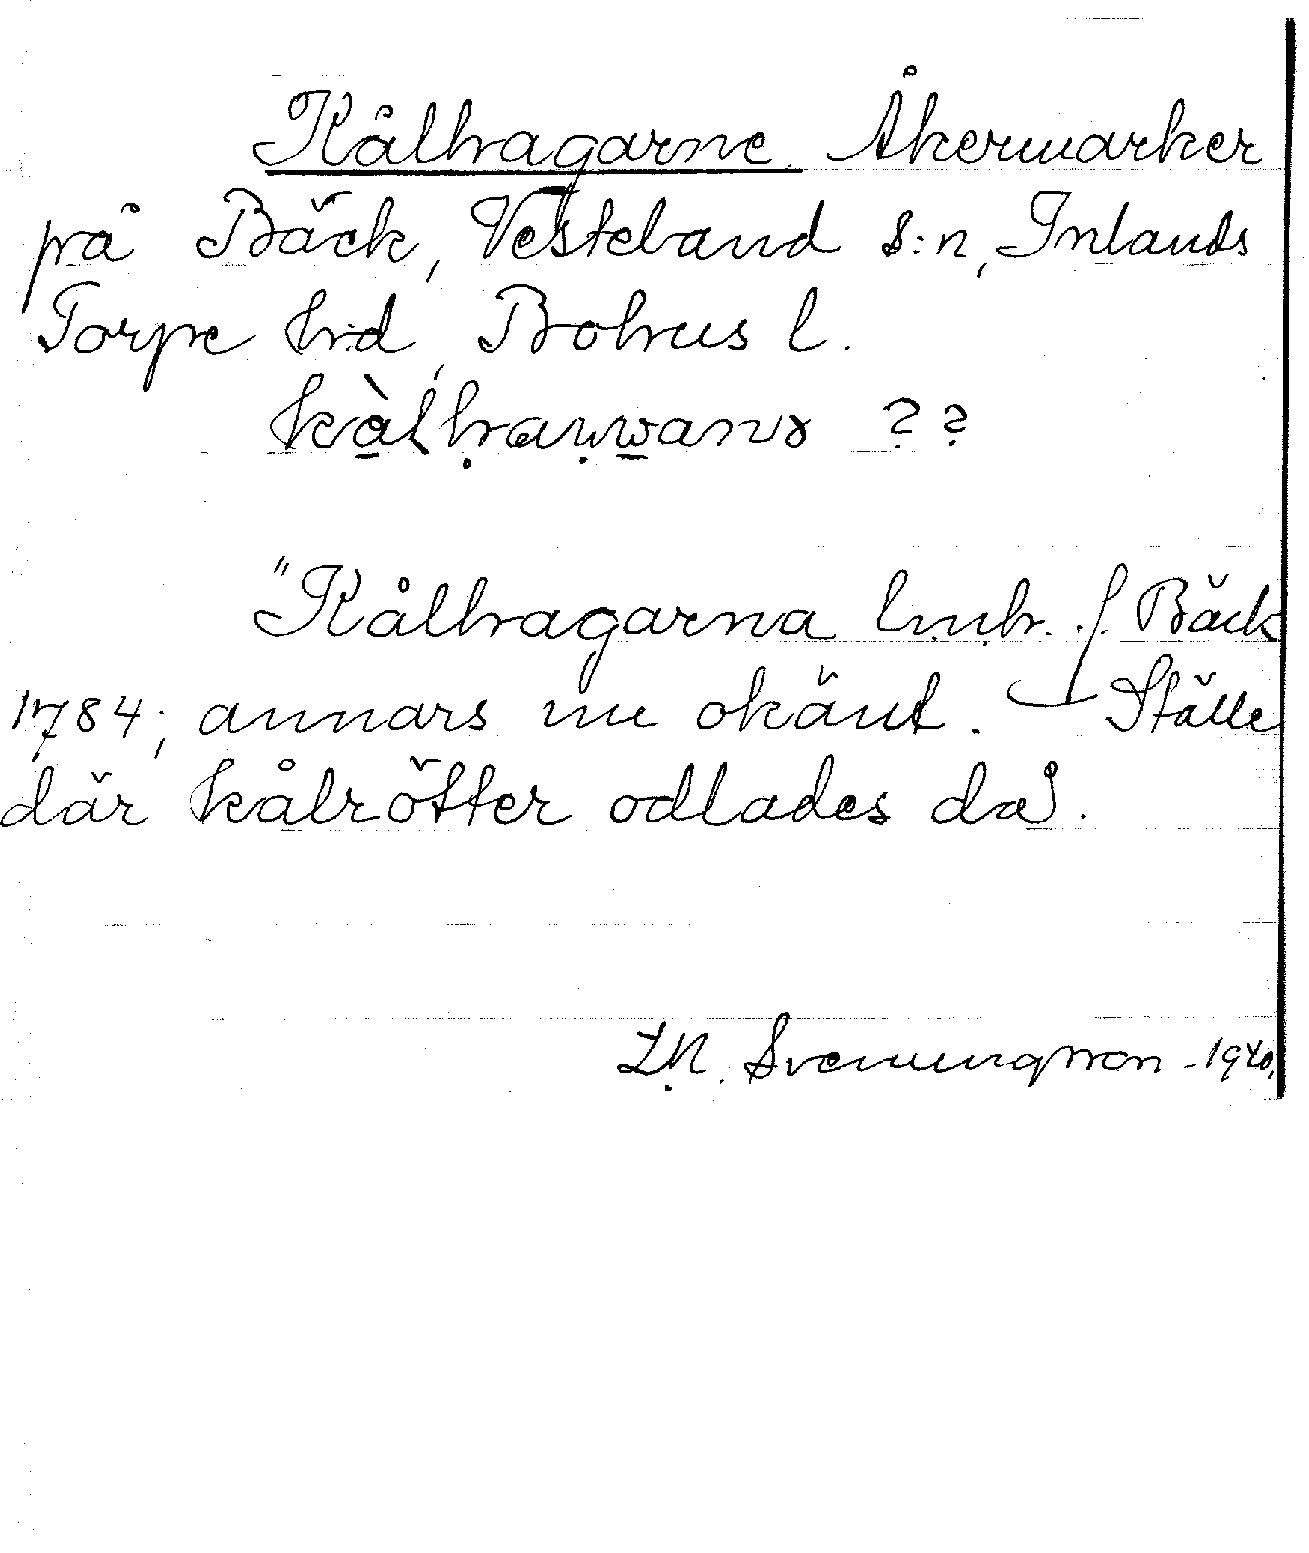 Kålhagarne. Åkermarker
på Bäck, Vesteland s:n, Inlands
Torpe hd, Bohus l.
??
"Kålhagarna lmh. f. Bäck
1784; annars nu okänt. — Ställe
där kålrötter odlades då.
Svenungsson - 1940.